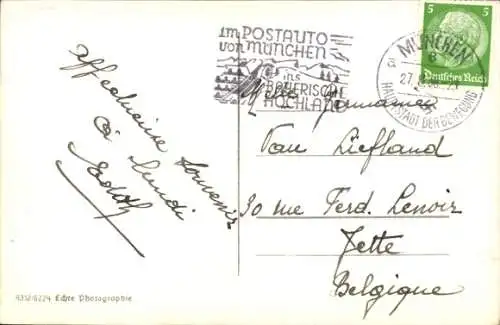 im POSTAUTO
von MÜNCHEN
ins
BAYERISCHE
HOCHLAND
MÜNCHEN
27
HAUPTSTADT DER BEWEGUNG
5 5
Deutsches Reich
Affectueux Souvenir
à Lundi
Edith
Melle
Van Liefland
30 rue Ferd. Lenoir
Jette
Belgique
Echte Photographie